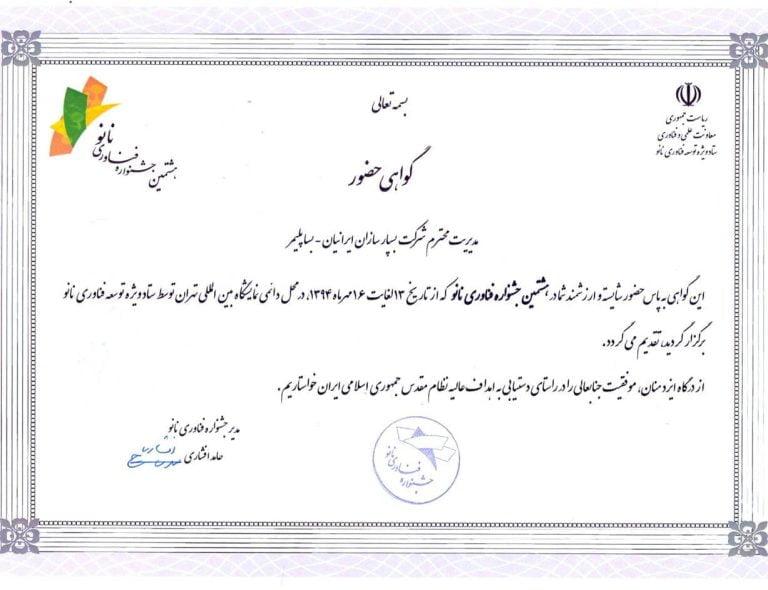 بسمه تعالی
ریاست جمهوری
معاونت علمی و فناوری
ستاد ویژه توسعه فناوری نانو
هشتمین جشنواره فناوری نانو
گواهی حضور
مدیریت محترم شرکت بسپار سازان ایرانیان - بسپاپلیمر
این گواهی به پاس حضور شایسته و ارزشمند شما در هشتمین جشنواره فناوری نانو که از تاریخ ۱۳ لغایت ۱۶ مهر ماه ۱۳۹۴، در محل دائمی نمایشگاه بین المللی تهران توسط ستاد ویژه توسعه فناوری نانو
برگزار گردید، تقدیم می گردد.
از درگاه ایزد منان، موفقیت جنابعالی را در راستای دستیابی به اهداف عالیه نظام مقدس جمهوری اسلامی ایران خواستاریم.
مدیر جشنواره فناوری نانو
حامد افشاری
جشنواره فناوری نانو